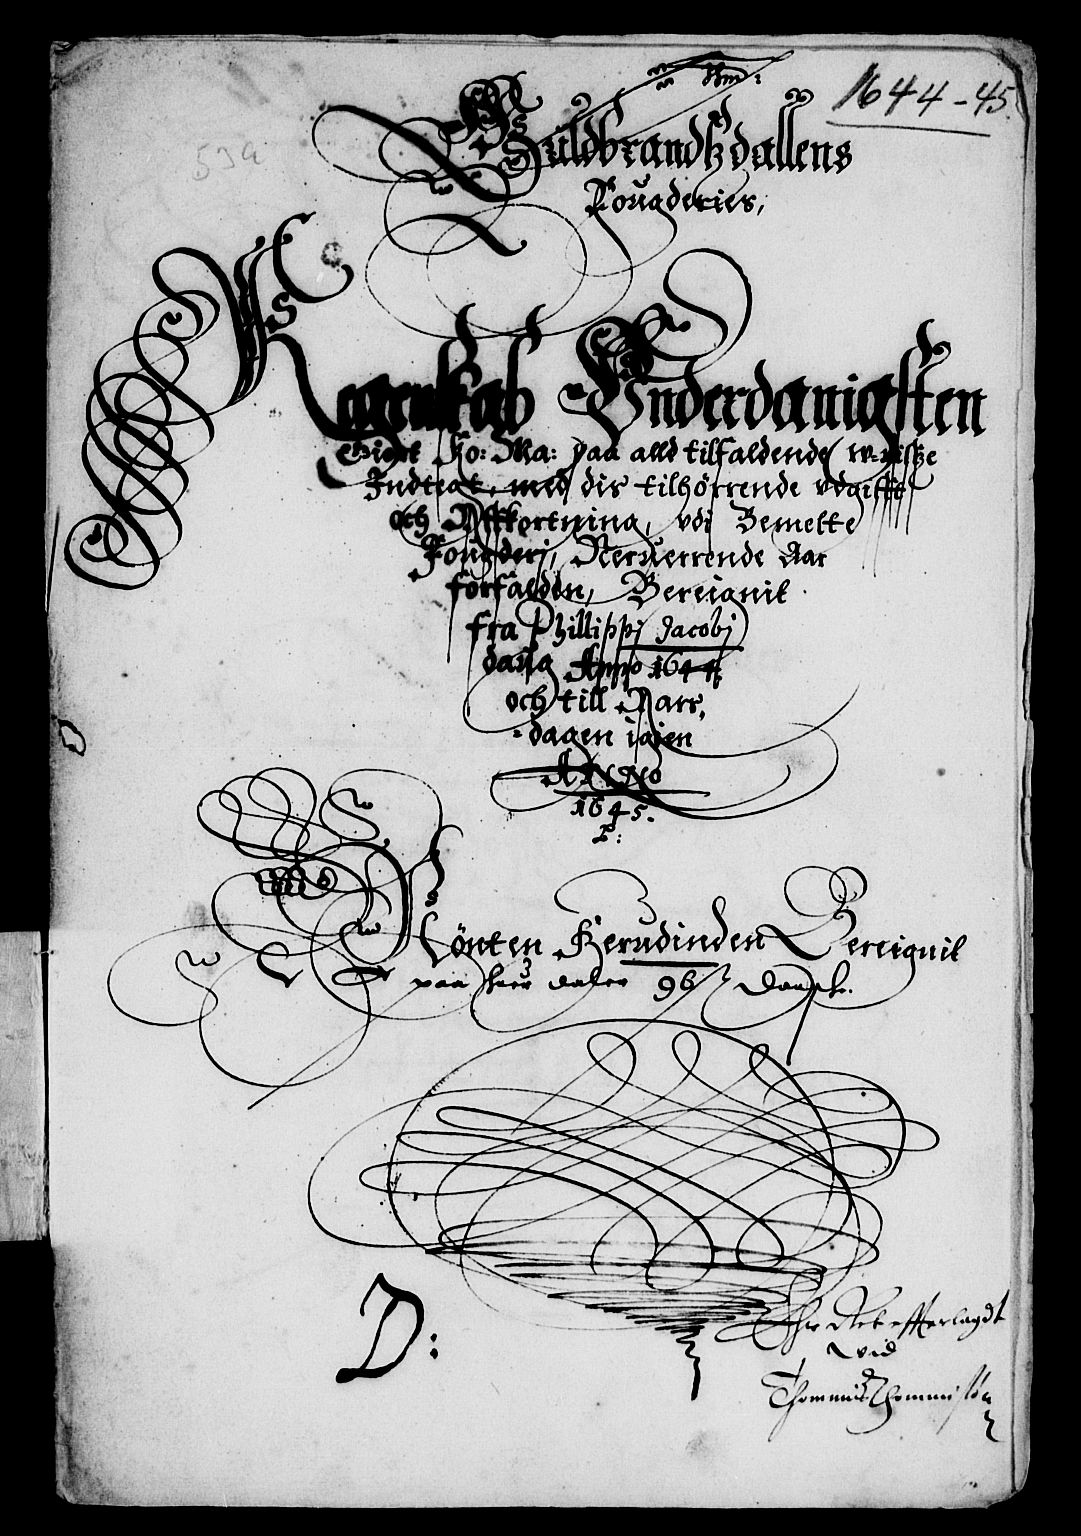 1644-45.
53a
Guldbrandtzdallens
Fougderies,
Regenskab Underdanigsten
giort Ko: Ma: paa alld tilfaldende
Indtegt, med dis tilhörrende udgifft
och Affkortning, udi Bemelte
Fougderj, Nerverrende Aar
forfalden, Bereignit
fra Phillippj Jacobj
dag Anno 1644
och till Aars,
dagen igien
ANNO
1645.
Mönten Herudinden Bereignit
paa huer daler 96 ß Dansche.
Er Ret efferlagdt
ved
Thommis Thommisön
D: